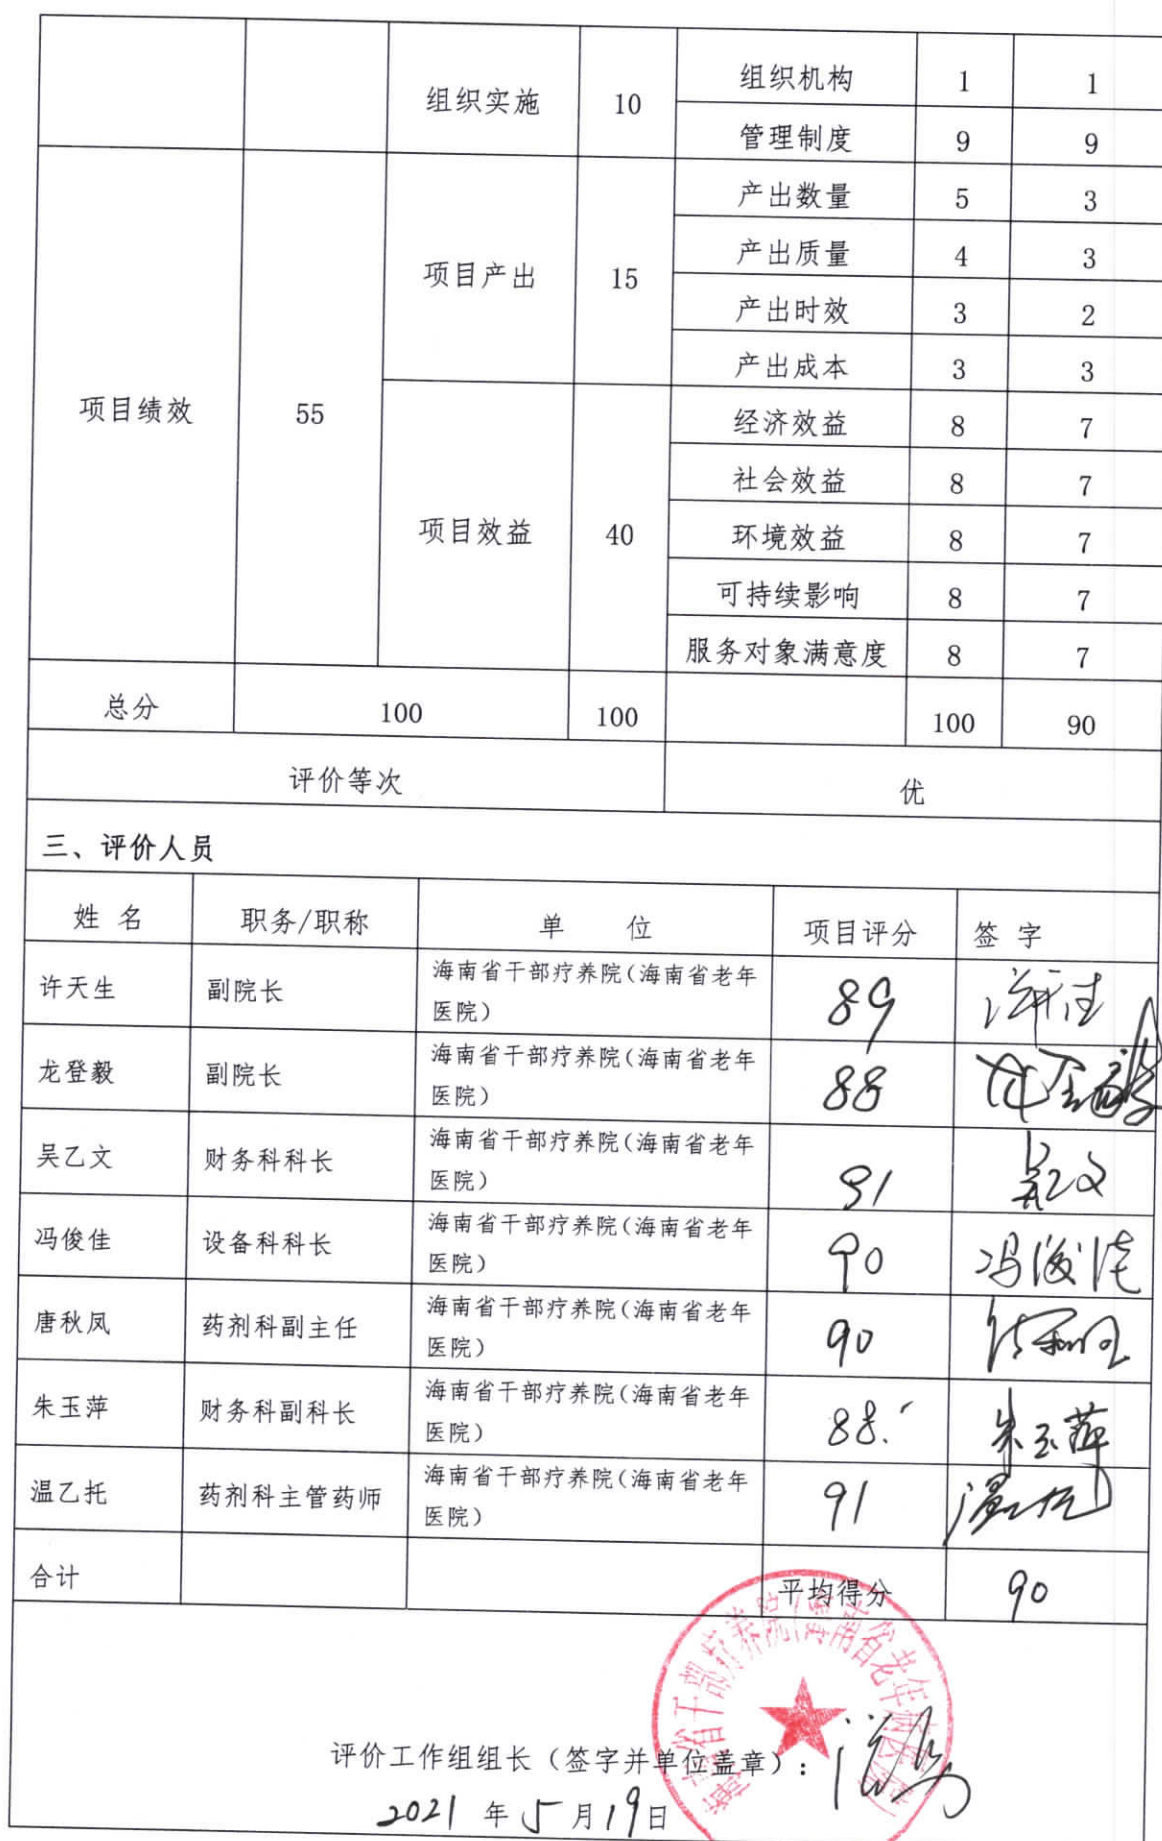 组织实施 10 组织机构 1 1
管理制度 9 9
项目绩效 55 项目产出 15 产出数量 5 3
产出质量 4 3
产出时效 3 2
产出成本 3 3
项目效益 40 经济效益 8 7
社会效益 8 7
环境效益 8 7
可持续影响 8 7
服务对象满意度 8 7
总分 100 100 100 90
评价等次 优
三、评价人员
姓 名 职务/职称 单 位 项目评分 签 字
许天生 副院长 海南省干部疗养院(海南省老年
医院) 89
龙登毅 副院长 海南省干部疗养院(海南省老年
医院) 88
吴乙文 财务科科长 海南省干部疗养院(海南省老年
医院) 91 吴乙文
冯俊佳 设备科科长 海南省干部疗养院(海南省老年
医院) 90 冯俊佳
唐秋凤 药剂科副主任 海南省干部疗养院(海南省老年
医院) 90
朱玉萍 财务科副科长 海南省干部疗养院(海南省老年
医院) 88. 朱玉萍
温乙托 药剂科主管药师 海南省干部疗养院(海南省老年
医院) 91
合计 平均得分 90
评价工作组组长（签字并单位盖章）:
2021 年 5 月 19 日